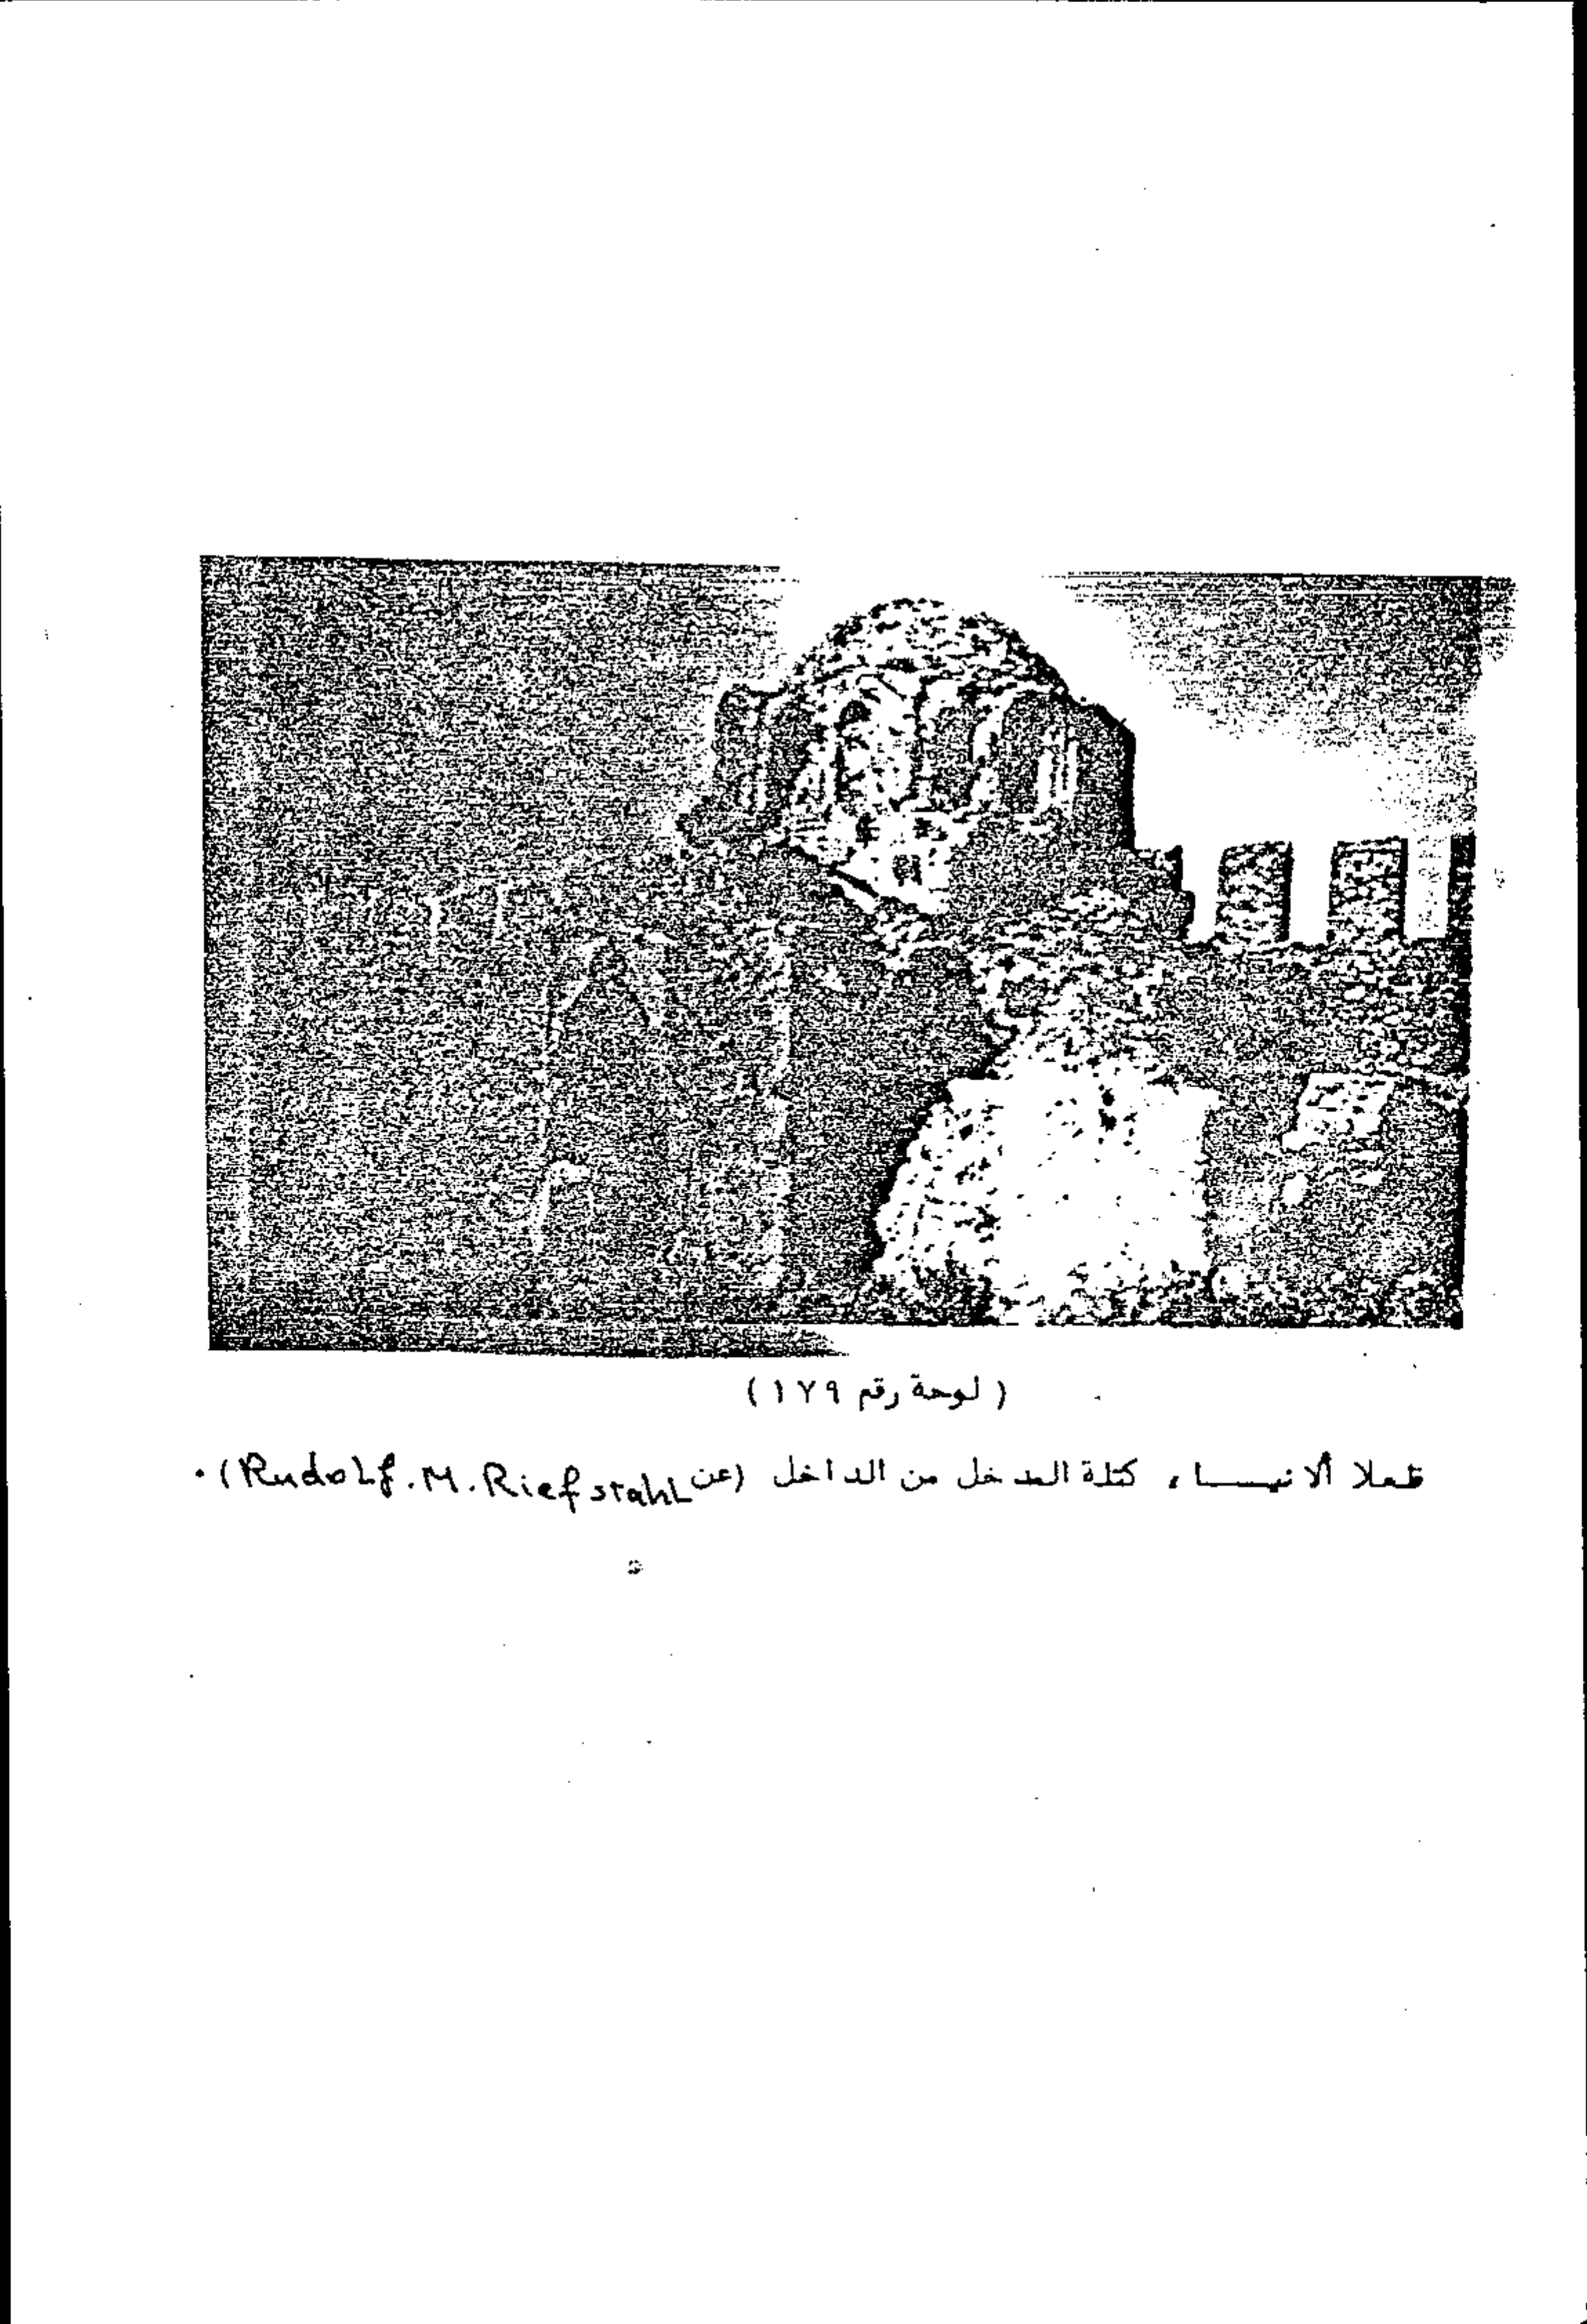 ( لوحة رقم ١٧٩ )
قلعة ألانيـــا، كتلة المدخل من الداخل (عن Rudolf.M.Riefstahl) .